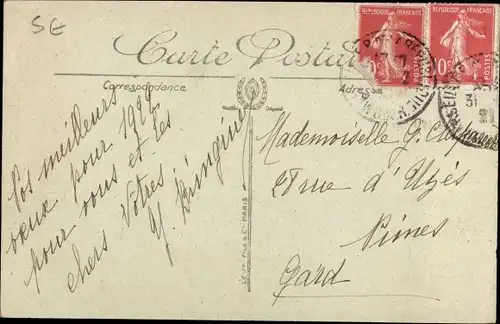 SE
Carte Postale
Correspondance
Adresse
REPUBLIQUE FRANÇAISE
POSTES
10c
REPUBLIQUE FRANÇAISE
POSTES
10c
31
Nos meilleurs
vœux pour 1922
pour vous et les
chers Votres
Y
Mademoiselle G.
28 rue d'Uzés
Nimes
Gard
PARIS